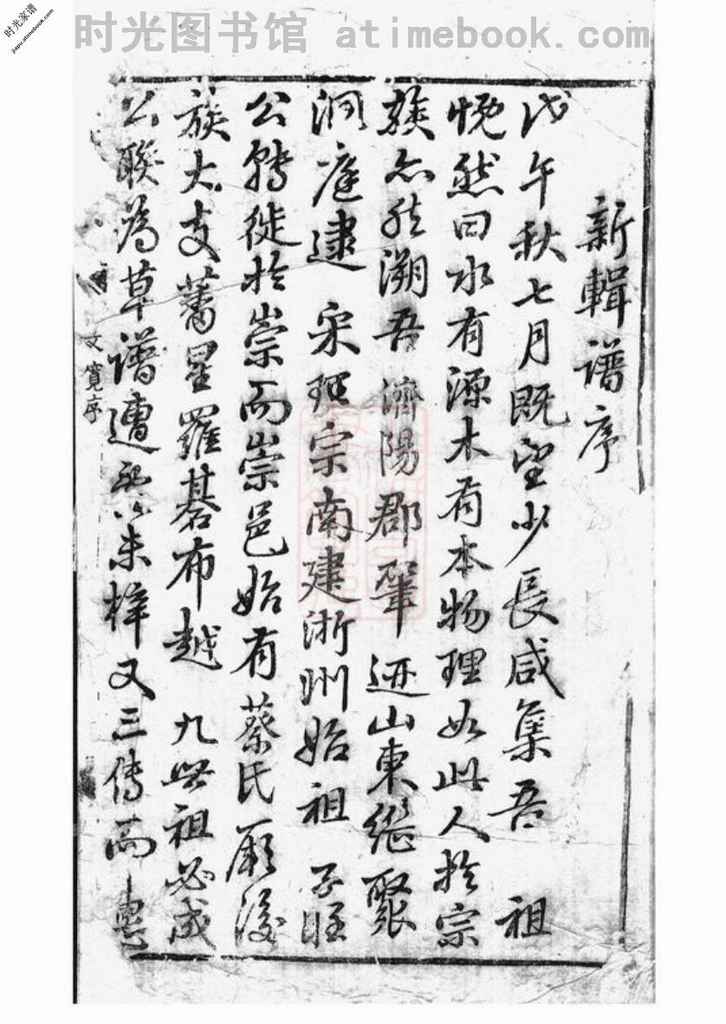 时光图书馆 atimebook.com
时光家谱
jiapu.atimebook.com
新輯譜序
戊午秋七月既望少長咸集吾 祖
恍然曰水有源木有本物理如此人於宗
族亦然溯吾濟陽郡肇迹山東繼聚
洞庭建 宋理宗南建浙州始祖 子旺
公轉徙於崇而崇邑始有蔡氏厥後
族大支蕃星羅碁布越 九世祖必成
公聯為草譜遭 未梓又三傳而
文寬序